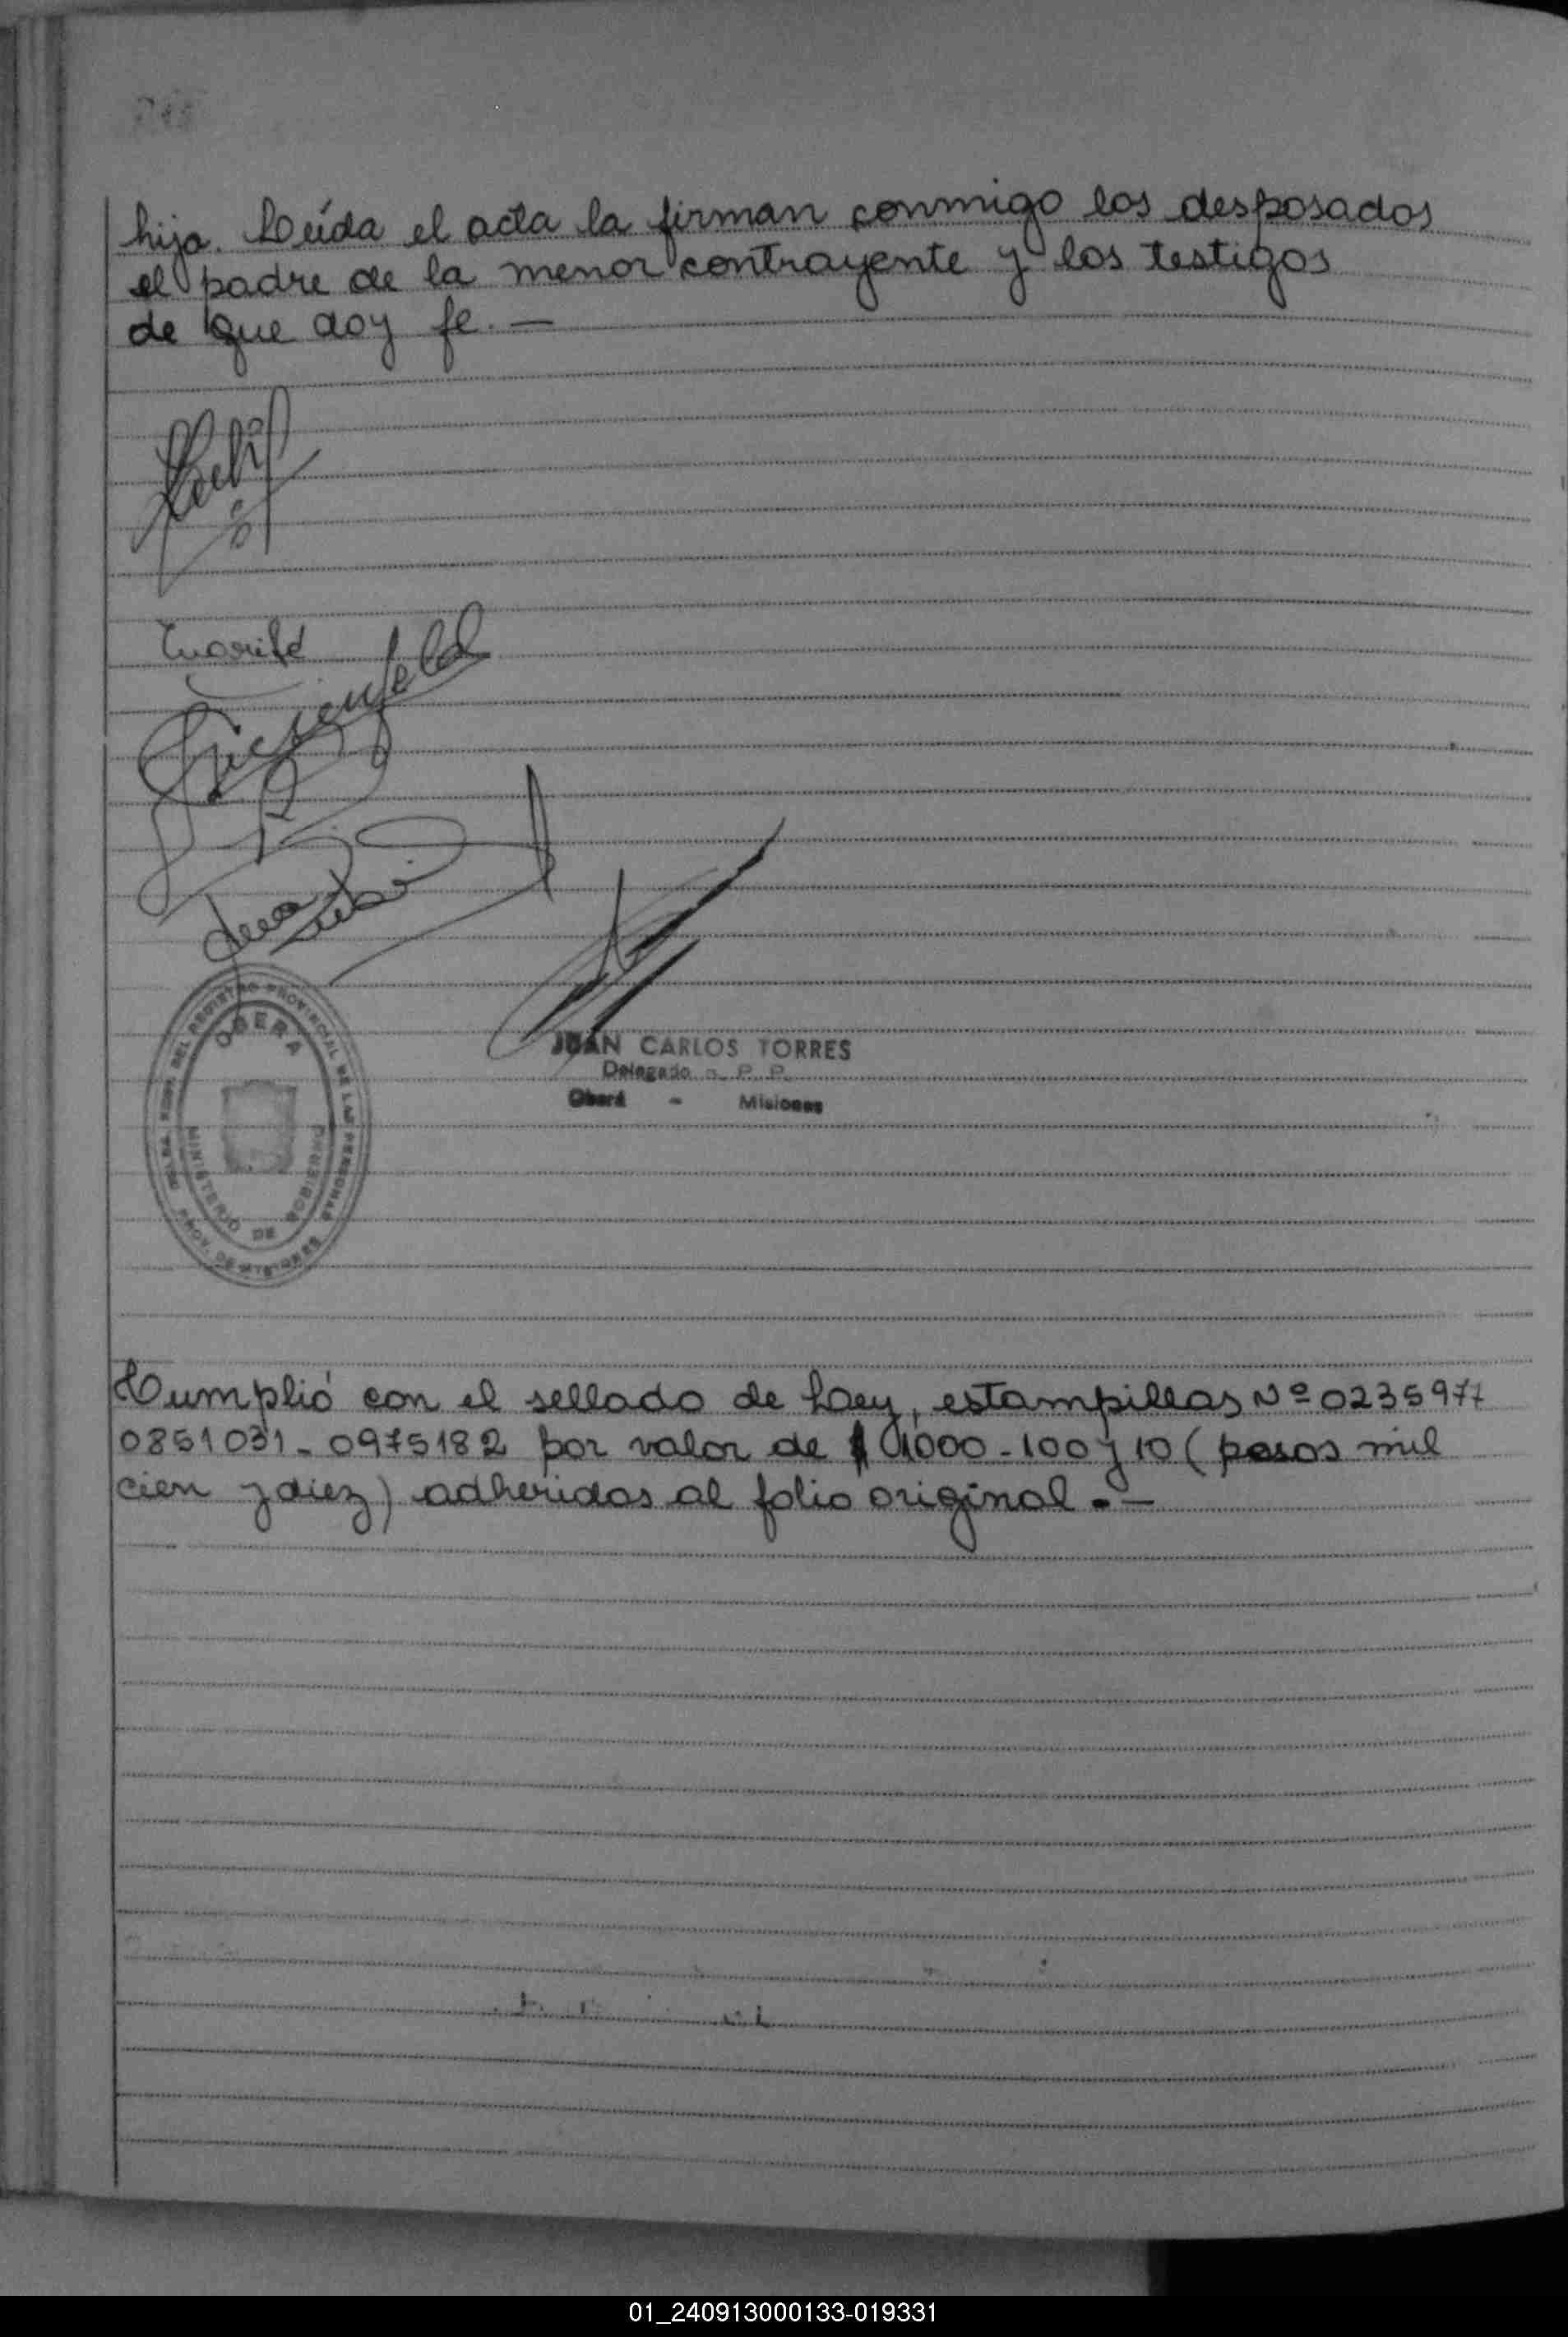 hija. Leída el acta la firman conmigo los desposados
el padre de la menor contrayente y los testigos
de que doy fe. —
JUAN CARLOS TORRES
Delegado R. P. P.
Oberá - Misiones
OBERA
REGISTRO PROVINCIAL DE LAS PERSONAS
MINISTERIO DE GOBIERNO
PROV. DE MISIONES
Cumplió con el sellado de Ley, estampillas Nº 0235977
0851031 - 0975182 por valor de $ 1000 - 100 y 10 (pesos mil
cien y diez) adheridas al folio original. —
01_240913000133-019331